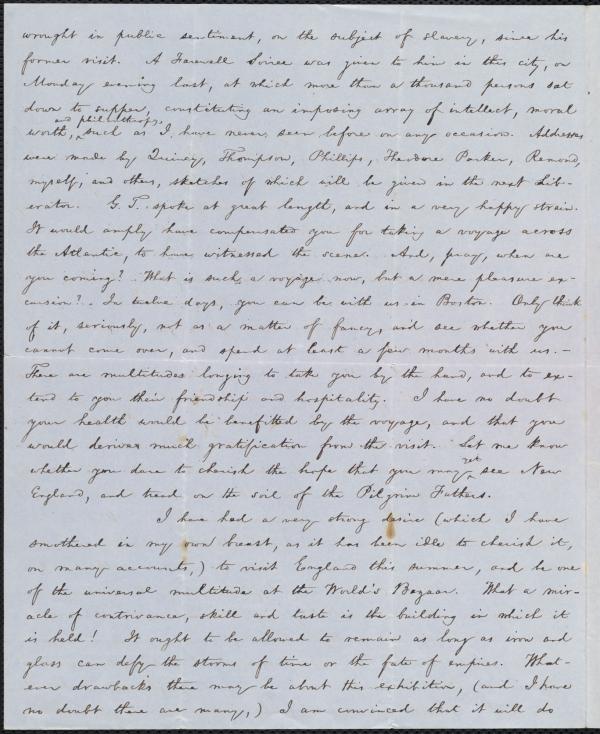 wrought in public sentiment, on the subject of slavery, since his
former visit. A Farewell Soiree was given to him in this city, on
Monday evening last, at which more than a thousand persons sat
down to supper, constituting an imposing array of intellect, moral
and philanthropy,
worth, such as I have never seen before on any occasion. Addresses
were made by Quincy, Thompson, Phillips, Theodore Parker, Remond,
myself, and others, sketches of which will be given in the next Lib-
erator. G. T. spoke at great length, and in a very happy strain.
It would amply have compensated you for taking a voyage across
the Atlantic, to have witnessed the scene. And, pray, when are
you coming? What is such a voyage now, but a mere pleasure ex-
cursion? In twelve days, you can be with us in Boston. Only think
of it, seriously, not as a matter of fancy, and see whether you
cannot come over, and spend at least a few months with us.—
There are multitudes longing to take you by the hand, and to ex-
tend to you their friendship and hospitality. I have no doubt
your health would be benefitted by the voyage, and that you
would derive much gratification from the visit. Let me know
whether you dare to cherish the hope that you may yet see New
England, and tread on the soil of the Pilgrim Fathers.
I have had a very strong desire (which I have
smothered in my own breast, as it has been idle to cherish it,
on many accounts,) to visit England this summer, and be one
of the universal multitude at the World's Bazaar. What a mir-
acle of contrivance, skill and taste is the building in which it
is held! It ought to be allowed to remain as long as iron and
glass can defy the storms of time or the fate of empires. What-
ever drawbacks there may be about this exhibition, (and I have
no doubt there are many,) I am convinced that it will do